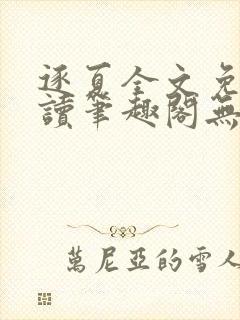 逐夏全文免
讀筆趣閣無
萬尼亞的雪人